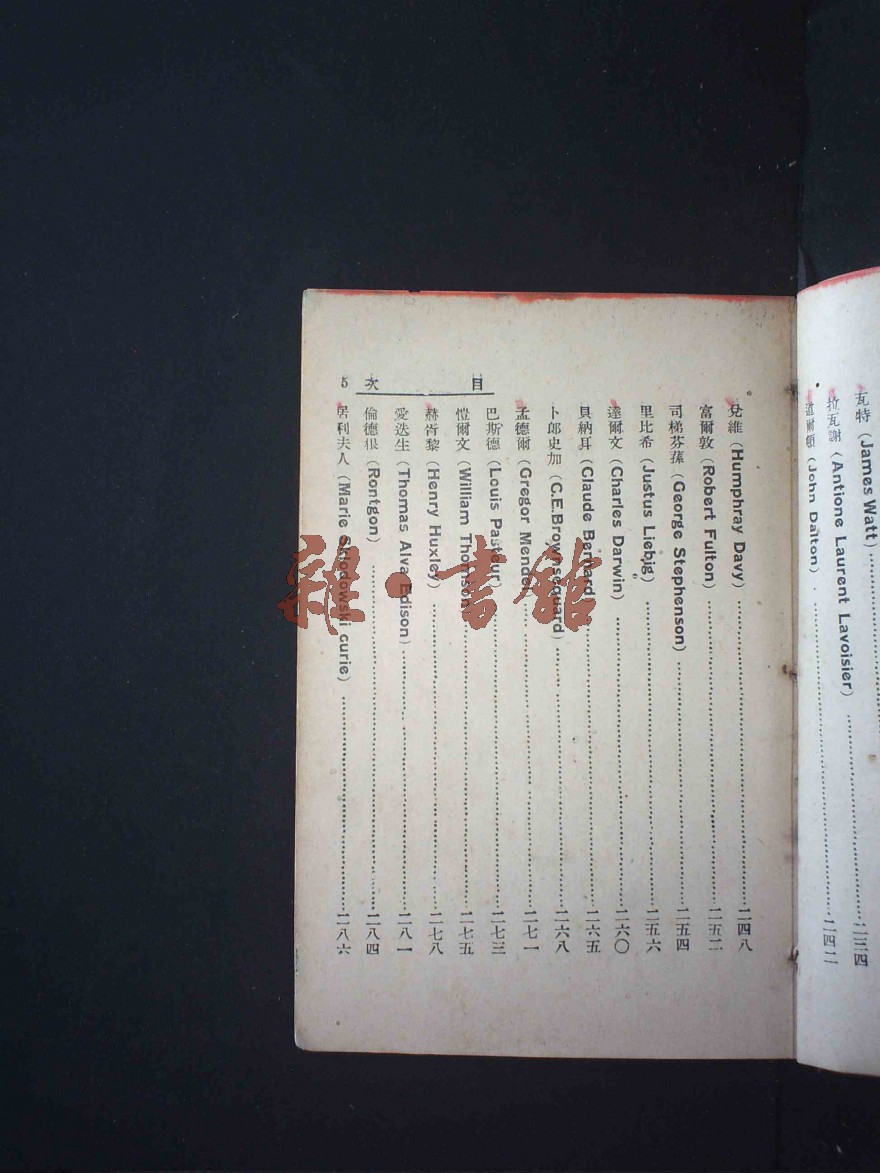 瓦特 (James Watt)……二三四
拉瓦謝 (Antione Laurent Lavoisier)……二四二
道爾頓 (John Dalton)
目 次 5
兌維 (Humphray Davy)……二四八
富爾敦 (Robert Fulton)……二五二
司梯芬蓀 (George Stephenson)……二五四
里比希 (Justus Liebig)……二五六
達爾文 (Charles Darwin)……二六〇
貝納耳 (Claude Bernard)……二六五
卜郎史加 (C.E.Brownsequard)……二六八
孟德爾 (Gregor Mendel)……二七一
巴斯德 (Louis Pasteur)……二七三
愷爾文 (William Thomson)……二七五
赫胥黎 (Henry Huxley)……二七八
愛迭生 (Thomas Alva Edison)……二八一
倫德根 (Rontgon)……二八四
居利夫人 (Marie Sklodowski curie)……二八六
雜·書館